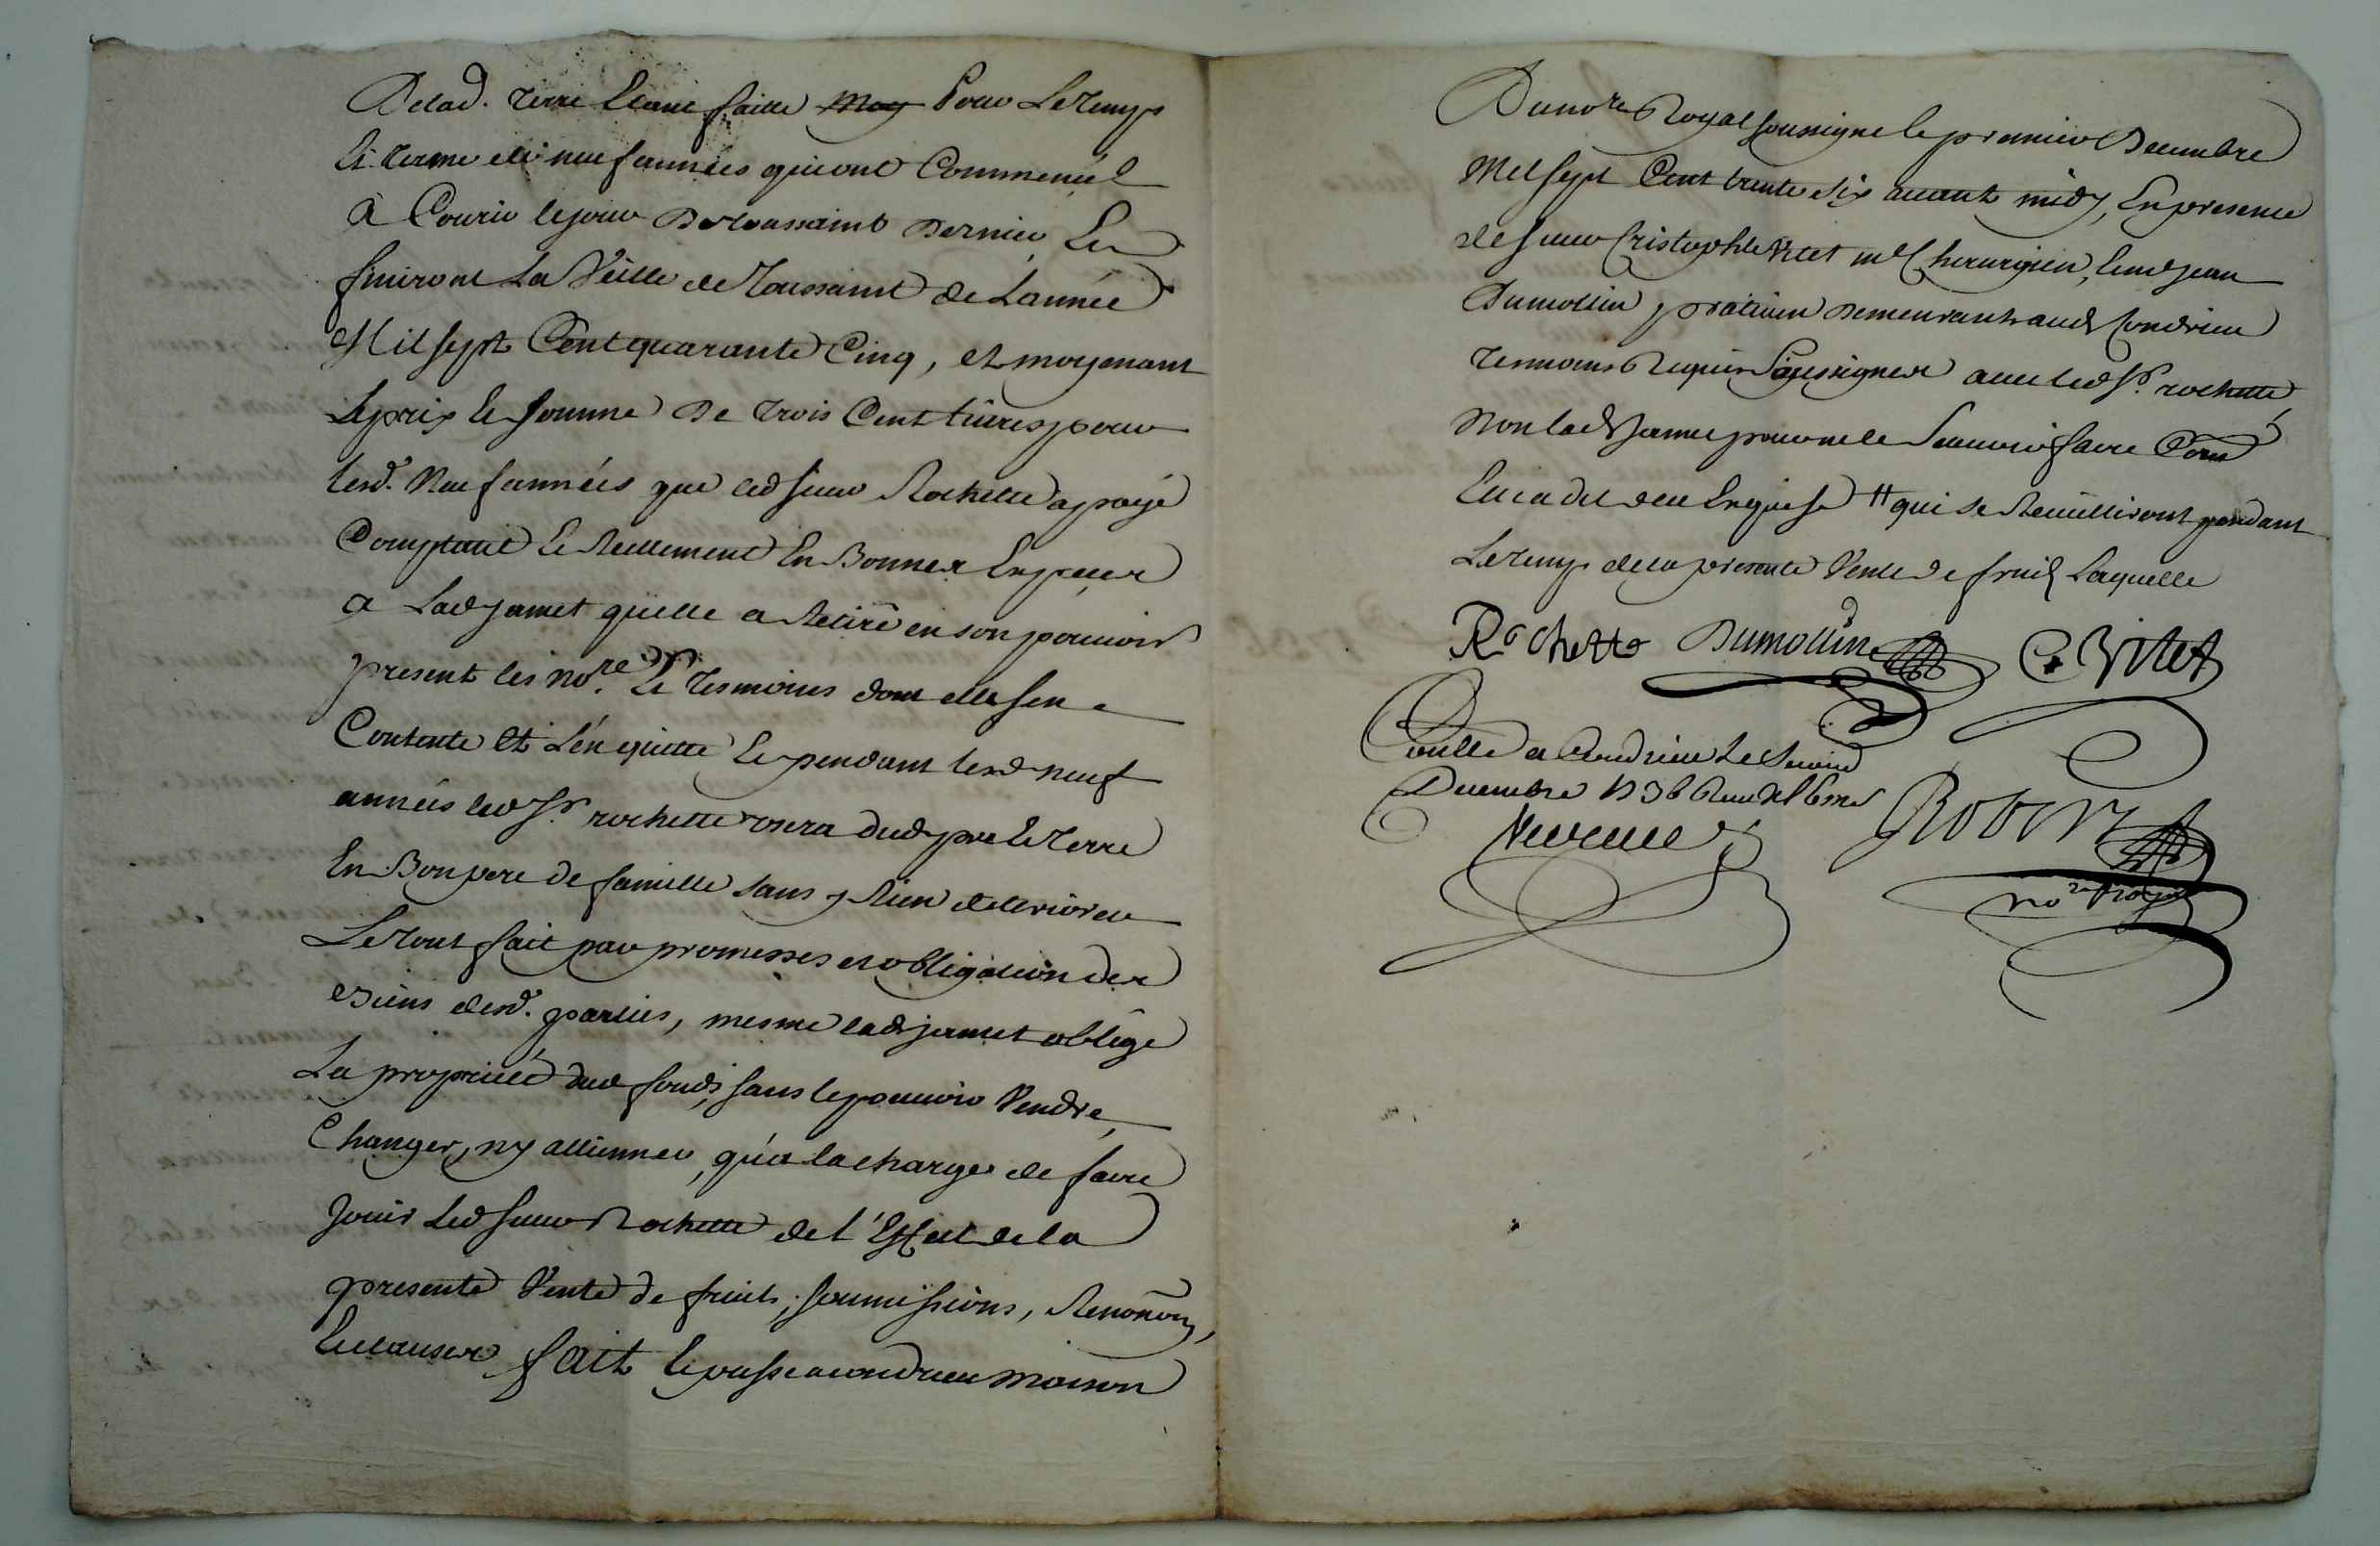 Delad. terre Estant faitte may Pour Le temps
Et terme de neuf années qui ont Commencé
à Courir le jour de toussaint dernier Et
finiront La Veille de Toussaint de L'année
Mil sept Cent quarante Cinq, et moyenant
Le prix Et somme De trois Cent livres pour
lesd. Neuf années que led sieur Rochette a payé
Comptant Et Reellement En Bonnes Especes
a Lad Jamet quelle a Retiré en son pouvoir
present les no.re Et tesmoins dont elle sen
Contente Et L'en quitte Et pendant lesd neuf
années led Sr. rochette usera dud pre Et Terre
En Bon pere de famille sans y Rien deteriorer
Le tout fait par promesses et obligation des
Biens desd. parties, mesme lad jamet oblige
La proprieté dud fonds, sans le pouvoir Vendre,
Changer, ny allienner, qu'a la charge de faire
Jouir Led sieur Rochette de l'Effet de la
presente Vente de fruits, soumissions, Renonõns,
Et clauses fait Et passé a condrieu maison
Du no.re Royal soussigné le premier Decembre
Mil sept Cent trente six avant midy, En presence
de sieur Cristophle Vitet me Chirurgien, Et Jean
Dumollin praticien demeurants aud Condrieu
tesmoins Requis Soussignes avec led Sr. rochette,
Non lad Jamet pour ne le Scavoir faire Comē
Elle a dit de ce Enquise # qui se Recuilliront pendant
Le temps de la presente Vente de fruits Laquelle
Rochette Dumollin C Vitet
Conllé a Condrieu Le Second
Decembre 1736 Receu
Robert
no.re Royal